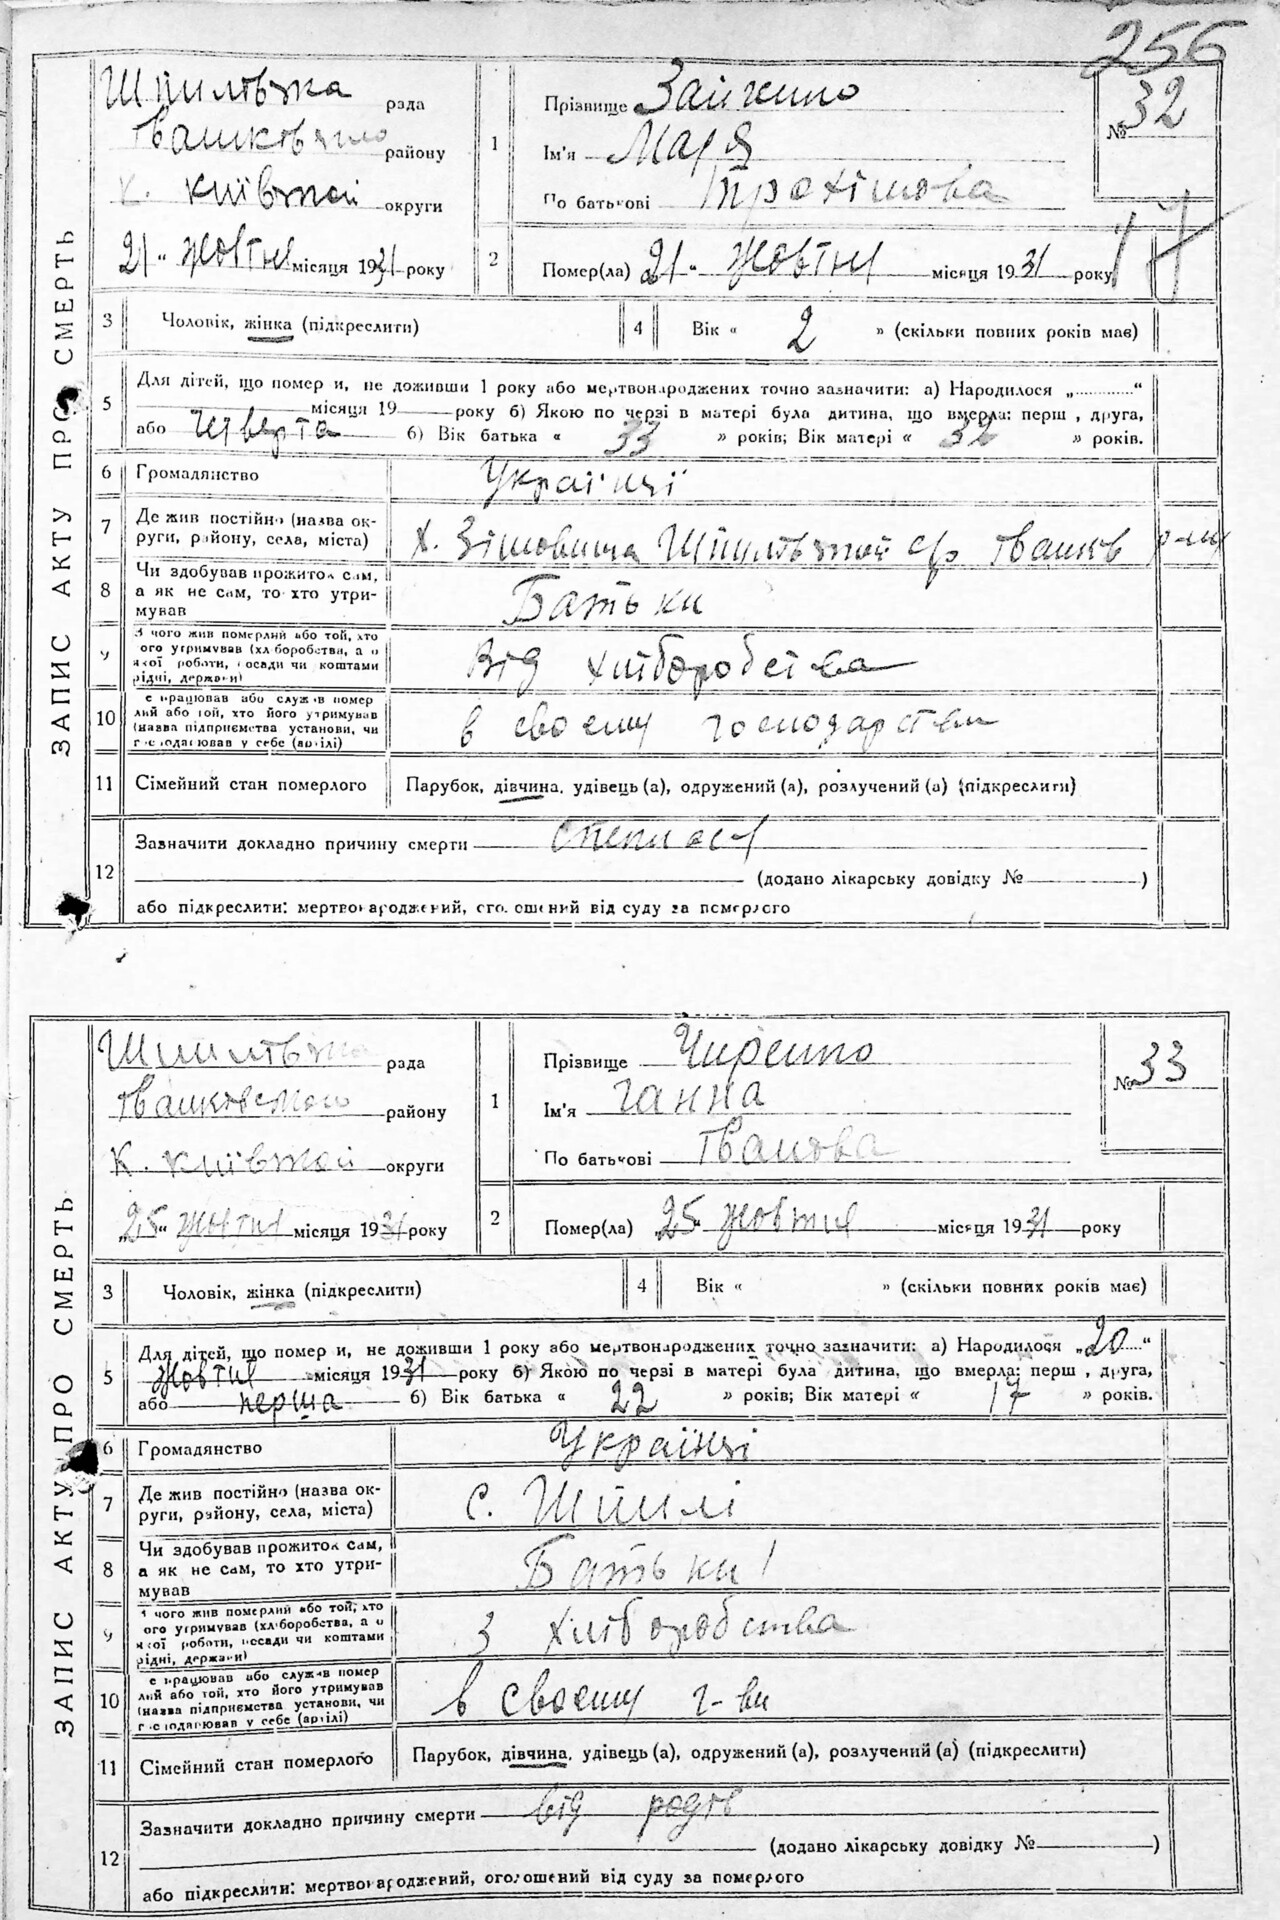 256
ЗАПИС АКТУ ПРО СМЕРТЬ
рада
району
К. Київской округи
21 „ жовтня місяця 1931 року
1
Прізвище
Ім'я Марія
По батькові Трохімова
№ 32
17
2
Помер(ла) 21 „ жовтня місяця 1931 року
3 Чоловік, жінка (підкреслити)
4 Вік « 2 » (скільки повних років має)
5 Для дітей, що померли, не доживши 1 року або мертвонароджених точно зазначити: а) Народилося „............“
місяця 19 року б) Якою по черзі в матері була дитина, що вмерла: перш , друга,
або четверта б) Вік батька « 33 » років; Вік матері « 32 » років.
6 Громадянство Українці
7 Де жив постійно (назва ок-
руги, району, села, міста) х. Зімовища с/р
8 Чи здобував прожиток сам,
а як не сам, то хто утри-
мував Батьки
9 З чого жив померлий або той, хто
ого утримував (хліборобства, а о
якої роботи, посади чи коштами
рідні, держави) Від хліборобства
10 е працював або служив помер
лий або той, хто його утримував
(назва підприємства установи, чи
господарював у себе (артілі) в своєму господарстві
11 Сімейний стан померлого Парубок, дівчина, удівець(а), одружений(а), розлучений(а) (підкреслити)
12 Зазначити докладно причину смерти
(додано лікарську довідку № )
або підкреслити: мертвонароджений, оголошений від суду за померлого
ЗАПИС АКТУ ПРО СМЕРТЬ
рада
району
К. Київской округи
„25“ жовтня місяця 1931 року
1
Прізвище
Ім'я Ганна
По батькові Іванова
№ 33
2
Помер(ла) „25“ жовтня місяця 1931 року
3 Чоловік, жінка (підкреслити)
4 Вік « » (скільки повних років має)
5 Для дітей, що померли, не доживши 1 року або мертвонароджених точно зазначити: а) Народилося „20....“
жовтня місяця 1931 року б) Якою по черзі в матері була дитина, що вмерла: перш , друга,
або перша б) Вік батька « 22 » років; Вік матері « 17 » років.
6 Громадянство Українці
7 Де жив постійно (назва ок-
руги, району, села, міста) с. Шпилі
8 Чи здобував прожиток сам,
а як не сам, то хто утри-
мував Батьки
9 чого жив померлий або той, хто
ого утримував (хліборобства, а о
якої роботи, посади чи коштами
рідні, держави) З хліборобства
10 е працював або служив помер
лий або той, хто його утримував
(назва підприємства установи, чи
господарював у себе (артілі) в своєму г-ві
11 Сімейний стан померлого Парубок, дівчина, удівець(а), одружений(а), розлучений(а) (підкреслити)
12 Зазначити докладно причину смерти від родів
(додано лікарську довідку № )
або підкреслити: мертвонароджений, оголошений від суду за померлого